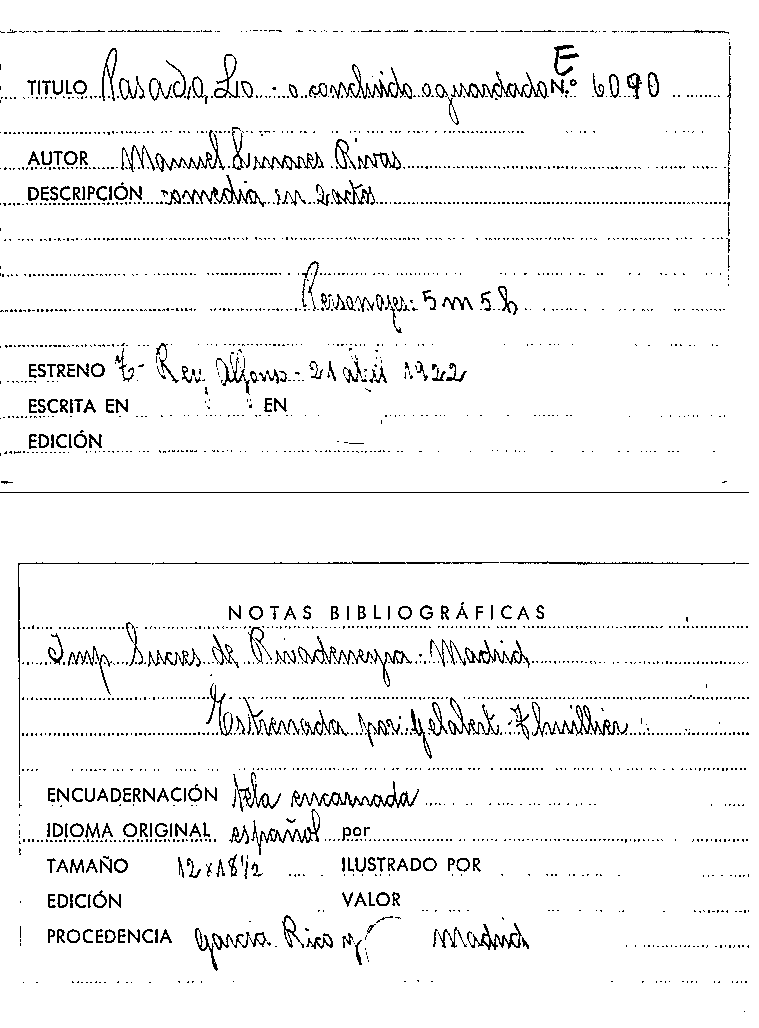 E
TITULO Pasado, Lo - o concluido o guardado N.º 6090
AUTOR Manuel Linares Rivas
DESCRIPCIÓN comedia en 2 actos
Personajes: 5 m 5 h
ESTRENO T- Rey Alfonso - 21 abril 1922
ESCRITA EN EN
EDICIÓN
NOTAS BIBLIOGRÁFICAS
Imp Sucres de Rivadeneyra - Madrid
Estrenada por: Gelabert - Thuillier
ENCUADERNACIÓN tela encarnada
IDIOMA ORIGINAL español por
TAMAÑO 12 x 18 1/2 ILUSTRADO POR
EDICIÓN VALOR
PROCEDENCIA Garcia Rico y Madrid